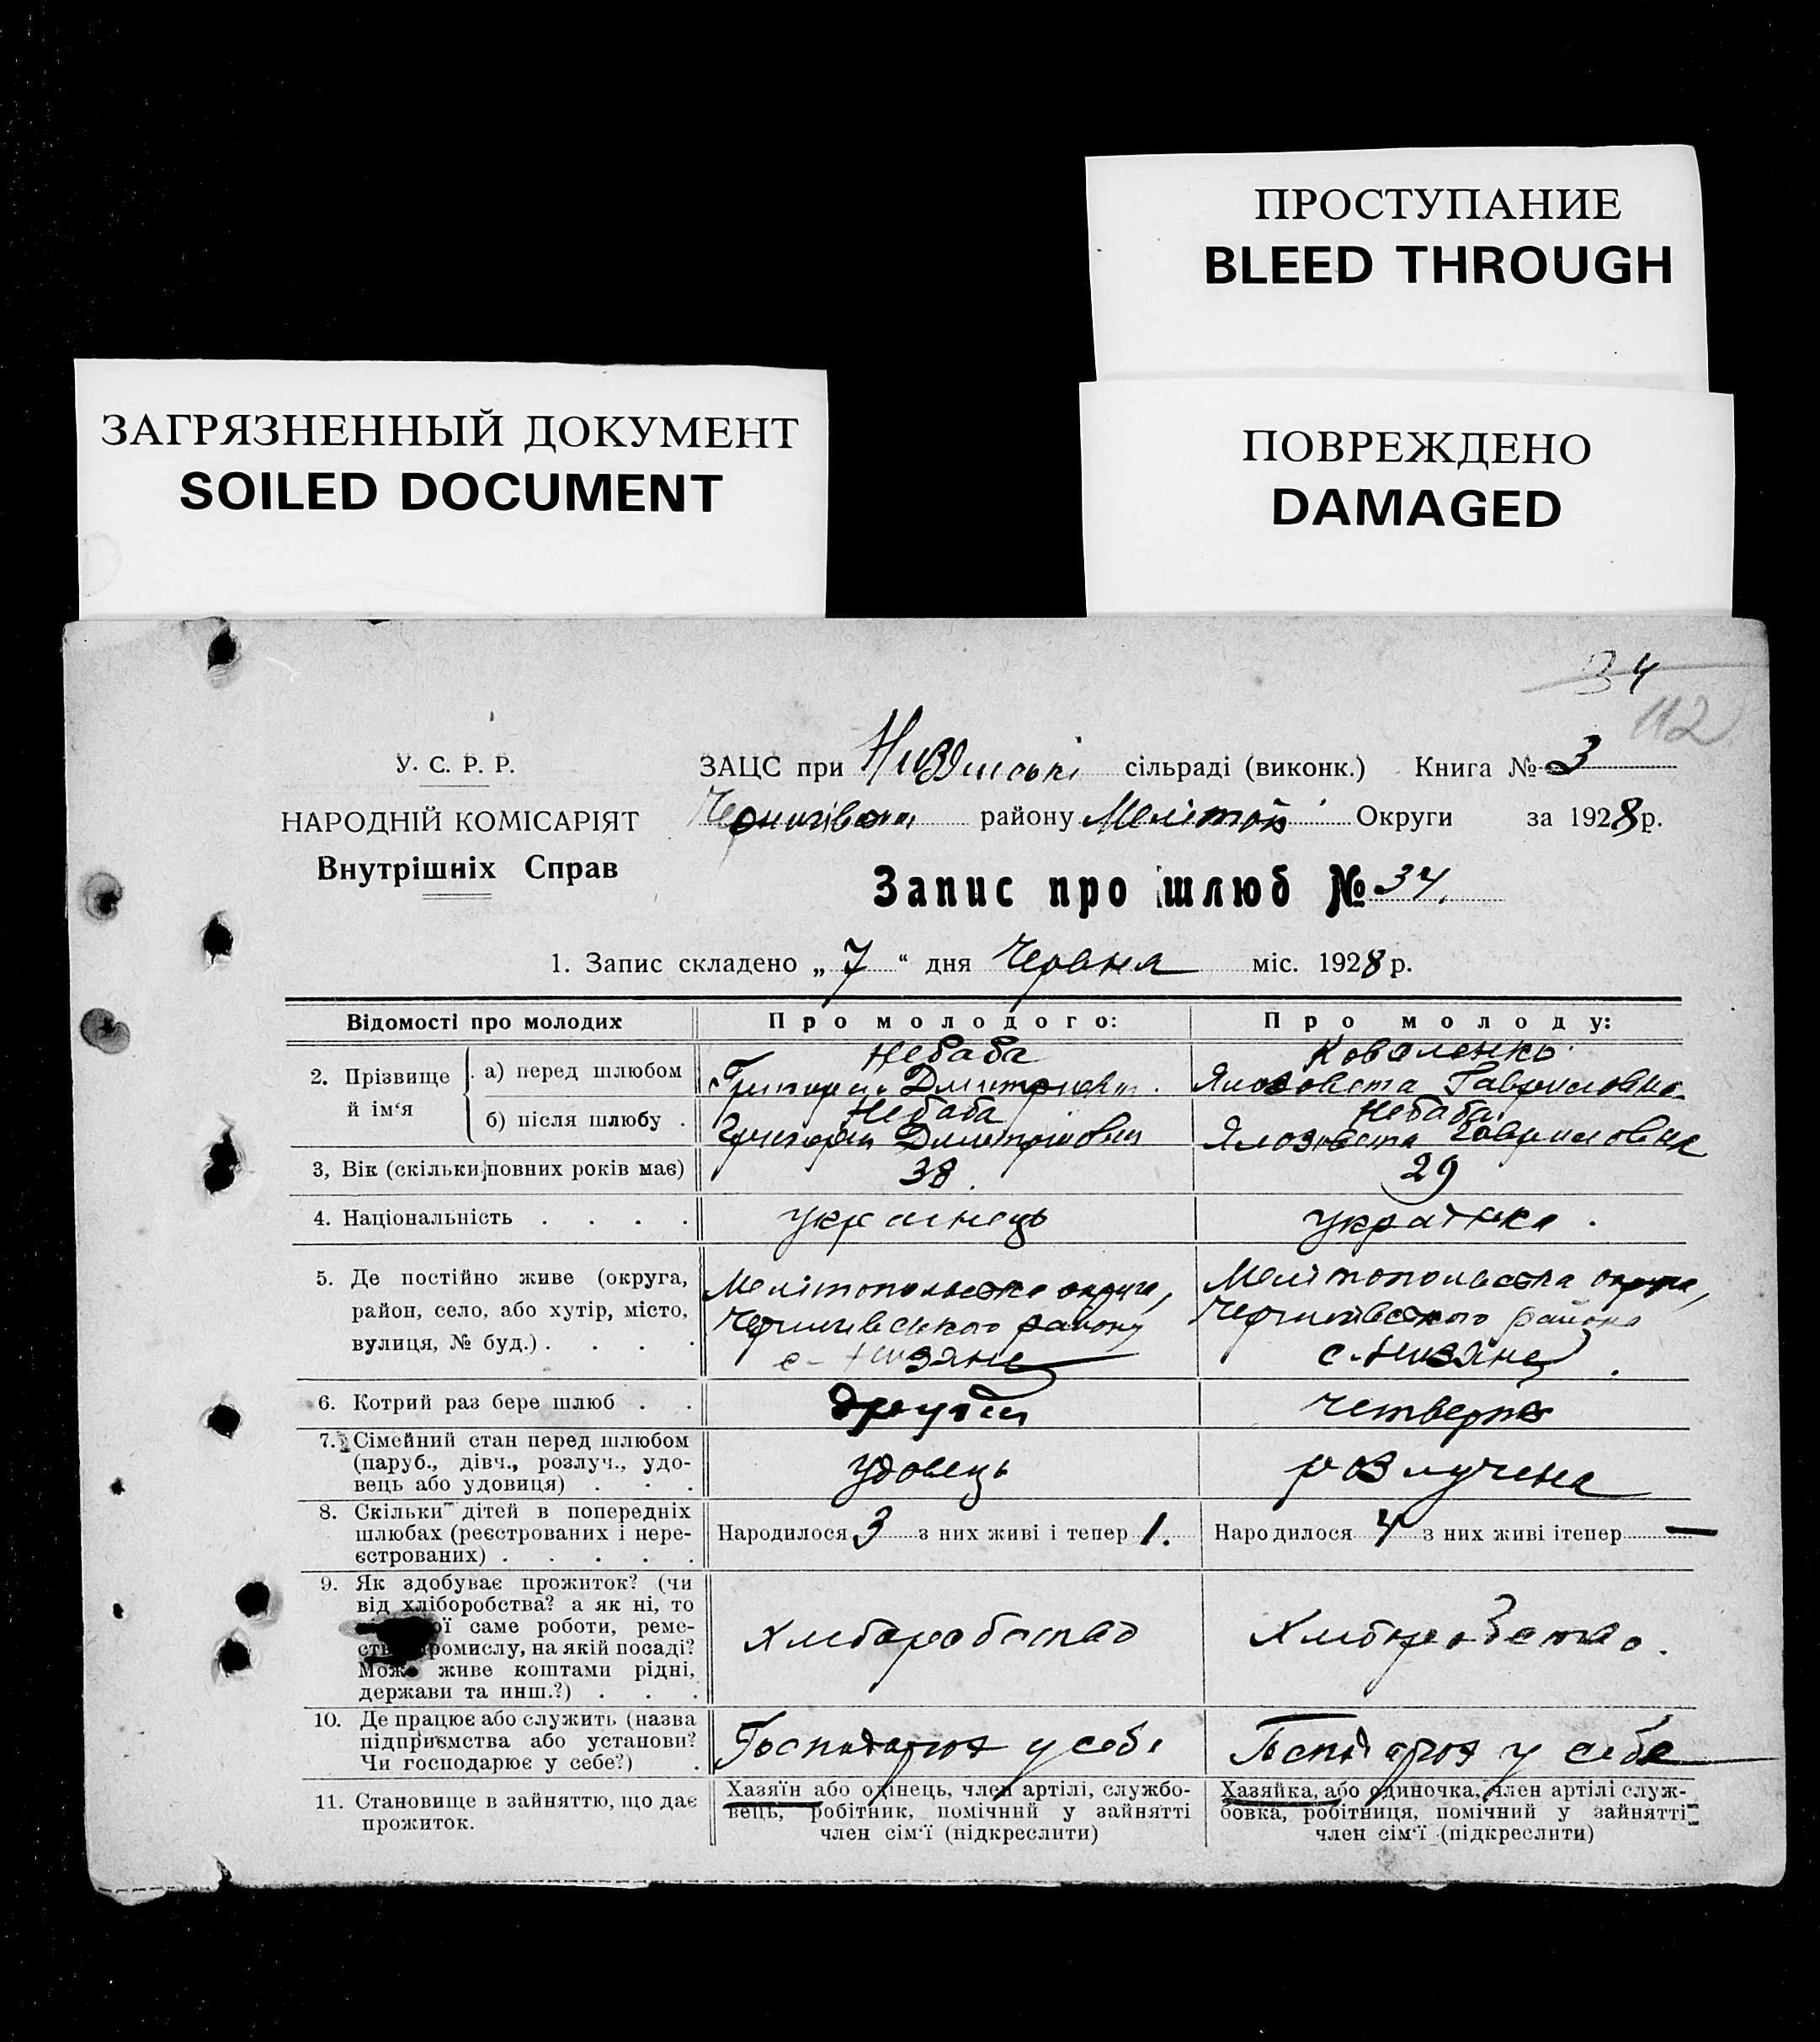 ПРОСТУПАНИЕ
BLEED THROUGH
ЗАГРЯЗНЕННЫЙ ДОКУМЕНТ
SOILED DOCUMENT
ПОВРЕЖДЕНО
DAMAGED
34
112
У. С. Р. Р.
НАРОДНІЙ КОМІСАРІЯТ
Внутрішніх Справ
ЗАЦС при сільраді (виконк.) Книга № 3
району Мелітоп Округи за 1928 р.
Запис про шлюб № 34.
1. Запис складено „ 7 “ дня Червня міс. 1928 р.
Відомості про молодих Про молодого: Про молоду:
2. Прізвище й ім‘я
а) перед шлюбом
Небаба
Дмитрієвич.
Коваленко.
Гавриловна
б) після шлюбу .
Небаба
Небаба
Гавриловна
3, Вік (скільки повних років має) 38. 29
4. Національність . . . . українець українка.
5. Де постійно живе (округа,
район, село, або хутір, місто,
вулиця, № буд.) . . . .
Мелітопольська округа,
Чернигівського району
с. Низяне
Мелітопольска округа,
Чернигівського района
с. Низяне.
6. Котрий раз бере шлюб . . другий четверта
7. Сімейний стан перед шлюбом
(паруб., дівч., розлуч., удо-
вець або удовиця) . . .
удовець
розлучена
8. Скільки дітей в попередніх
шлюбах (реєстрованих і нере-
єстрованих) . . . . .
Народилося 3 з них живі і тепер 1.
Народилося 4 з них живі ітепер —
9. Як здобуває прожиток? (чи
від хліборобства? а як ні, то
ої саме роботи, реме-
ст ромислу, на якій посаді?
Може живе коштами рідні,
держави та инш.?) . . .
Хлиборобство
Хлиборобство.
10. Де працює або служить (назва
підприємства або установи?
Чи господарює у себе?) .
Господарюя у себе
Господарюя у себе
11. Становище в зайняттю, що дає
прожиток.
Хазяїн або одінець, член артілі, службо-
вець, робітник, помічний у зайнятті
член сім‘ї (підкреслити)
Хазяйка, або одиночка, член артілі служ-
бовка, робітниця, помічний у зайнятті
член сім‘ї (підкреслити)